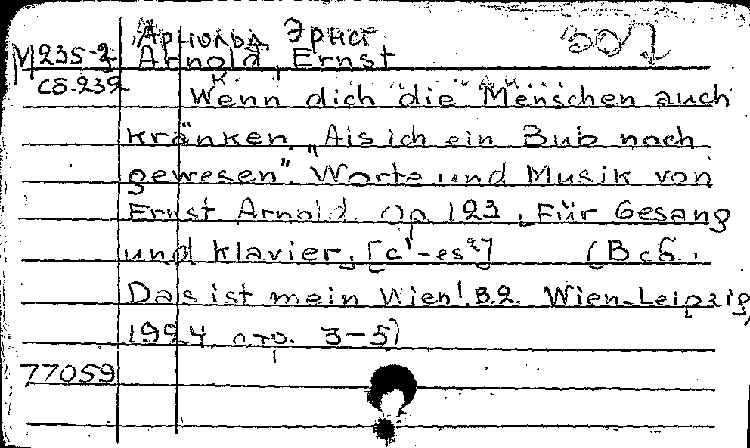 Арнольд Эрнст
М235-2 Arnold, Ernst
Сб.232
Wenn dich die Menschen auch
kränken. "Als ich ein Bub noch
gewesen". Worte und Musik von
Ernst Arnold. Op. 123. Für Gesang
und Klavier. [c¹-es²] (В сб.
Das ist mein Wien! B.2. Wien-Leipzig,
1924, стр. 3-5)
77059